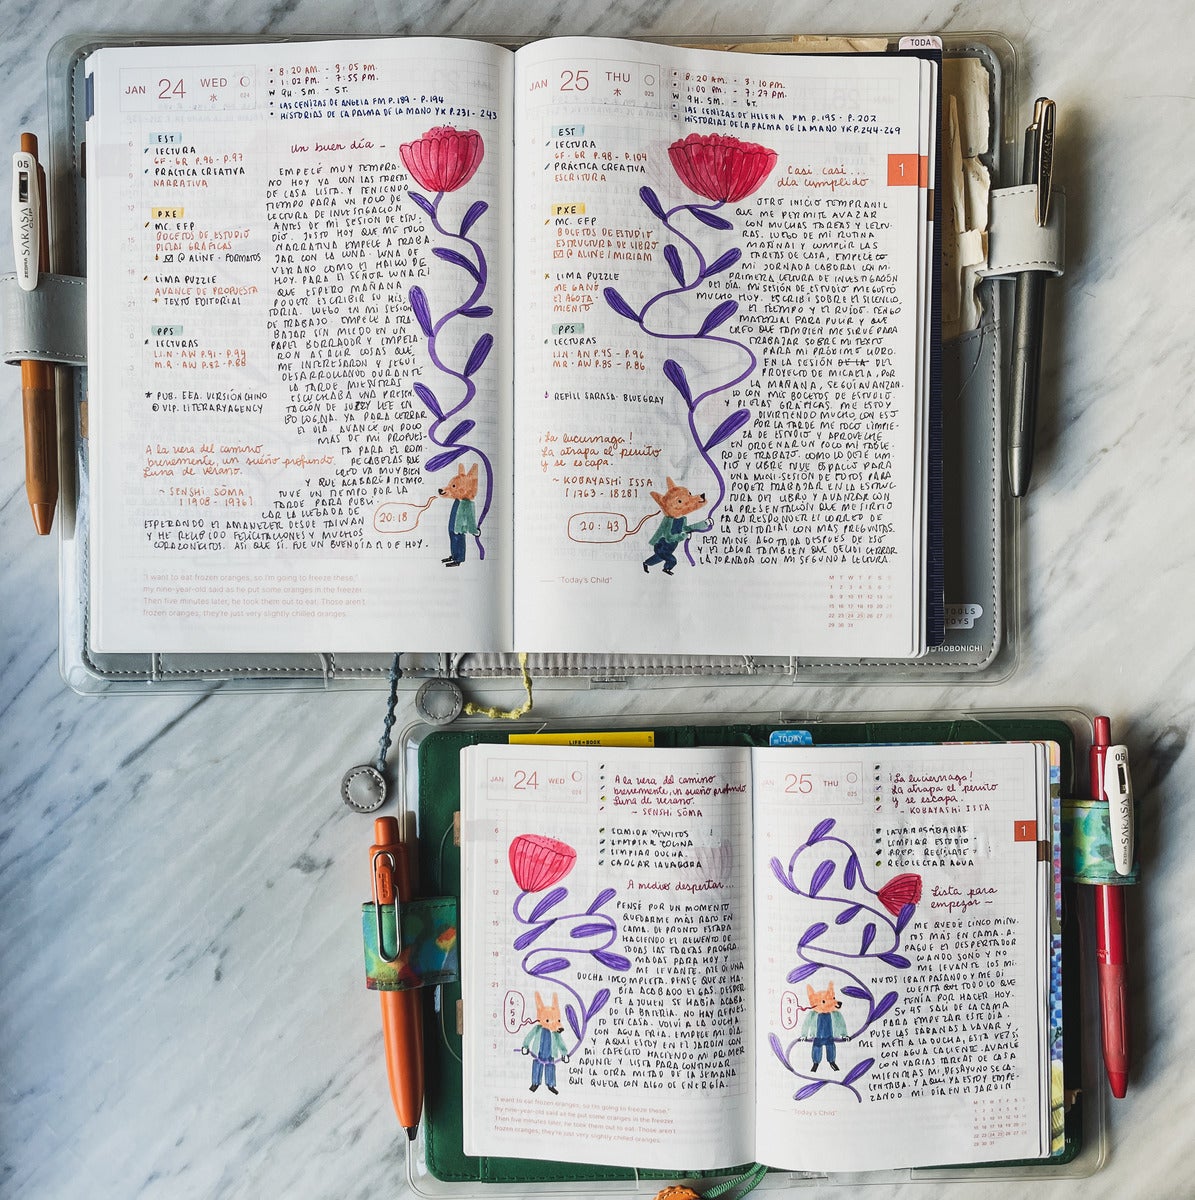 JAN 24 WED
水
024
8:20 AM. - 3:05 PM.
1:02 PM. - 7:55 PM.
W 9H. SM. - 5T.
LAS CENIZAS DE ANGELA FM P.189 - P.194
HISTORIAS DE LA PALMA DE LA MANO YK P.231 - 243
EST
LECTURA
GF · GR P.96 - P.97
PRÁCTICA CREATIVA
NARRATIVA
PXE
MC. EFP
BOCETOS DE ESTUDIO
PIEZAS GRÁFICAS
@ ALINE · FORMATOS
LIMA PUZZLE
AVANCE DE PROPUESTA
TEXTO EDITORIAL
PPS
LECTURAS
LIN · AN P.91 - P.94
M.R · AW P.82 - P.88
PUB. EEA. VERSIÓN CHINO
@ VLP. LITERARY AGENCY
A la vera del camino
brevemente, un sueño profundo.
Luna de verano.
~ SENSHI SŌMA
[1908 - 1976]
Un buen día ~
EMPECÉ MUY TEMPRA-
NO HOY YA CON LAS TAREAS
DE CASA LISTA. Y TENIENDO
TIEMPO PARA UN POCO DE
LECTURA DE INVESTIGACIÓN
ANTES DE MI SESIÓN DE ESTU-
DIO. JUSTO HOY QUE ME TOCÓ
NARRATIVA EMPECÉ A TRABA-
JAR CON LA LUNA. LUNA DE
VERANO COMO EL HAIKU DE
HOY. PARA EL SEÑOR LUNARI
QUE ESPERO MAÑANA
PODER ESCRIBIR SU HIS-
TORIA. LUEGO EN MI SESIÓN
DE TRABAJO. EMPECÉ A TRA-
BAJAR SIN MIEDO EN UN
PAPEL BORRADOR Y EMPEZA-
RON A SALIR COSAS QUE
ME INTERESARON Y SEGUÍ
DESARROLLANDO DURANTE
LA TARDE MIENTRAS
ESCUCHABA UNA PRESEN-
TACIÓN DE SUZY LEE EN
BOLOGNA. YA PARA CERRAR
EL DÍA. AVANCÉ UN POCO
MÁS DE MI PROPUES-
TA PARA EL ROM-
PECABEZAS QUE
CREO VA MUY BIEN
Y QUE ACABARÉ A TIEMPO.
TUVE UN TIEMPO POR LA
TARDE PARA PUBLI-
CAR LA LLEGADA DE
ESPERANDO EL AMANECER DESDE TAIWAN
Y HE RECIBIDO FELICITACIONES Y MUCHOS
CORAZONCITOS. ASÍ QUE SÍ. FUE UN BUEN DÍA EL DE HOY.
20:18
"I want to eat frozen oranges, so I'm going to freeze these,"
my nine-year-old said as he put some oranges in the freezer.
Then five minutes later, he took them out to eat. Those aren't
frozen oranges; they're just very slightly chilled oranges.
JAN 25 THU
木
025
8:20 AM. - 3:10 PM.
1:00 PM. - 7:27 PM.
W 9H. SM. - 6T.
LAS CENIZAS DE HELENA FM P.195 - P.202
HISTORIAS DE LA PALMA DE LA MANO YK P.244-269
TODA
1
EST
LECTURA
GF · GR P.98 - P.104
PRÁCTICA CREATIVA
ESCRITURA
PXE
MC. EFP
BOCETOS DE ESTUDIO
ESTRUCTURA DE LIBRO
@ ALINE / MIRIAM
LIMA PUZZLE
ME GANÓ
EL AGOTA-
MIENTO
PPS
LECTURAS
LIN · AN P.95 - P.96
MR · AW P.85 - P.86
REFILL SARASA · BLUE GRAY
¡La luciérnaga!
La atrapa el perrito
y se escapa.
~ KOBAYASHI ISSA
[1763 - 1828]
Casi casi...
día cumplido
OTRO INICIO TEMPRANIL
QUE ME PERMITE AVAZAR
CON MUCHAS TAREAS Y LECTU-
RAS. LUEGO DE MI RUTINA
MAÑANAI Y CUMPLIR LAS
TAREAS DE CASA, EMPECÉ CO
MI JORNADA LABORAL CON MI
PRIMERA LECTURA DE INVESTIGACIÓN
DEL DÍA. MI SESIÓN DE ESTUDIO ME GUSTÓ
MUCHO HOY. ESCRIBÍ SOBRE EL SILENCIO,
EL TIEMPO Y EL RUIDO. TENGO
MATERIAL PARA PULIR Y QUE
CREO QUE TAMBIÉN ME SIRVE PARA
TRABAJAR SOBRE MI TEXTO
PARA MI PRÓXIMO LIBRO.
EN LA SESIÓN DE LA DEL
PROYECTO DE MICAELA, POR
LA MAÑANA, SEGUÍ AVANZAN-
DO CON MIS BOCETOS DE ESTUDIO
Y PIEZAS GRÁFICAS. ME ESTOY
DIVIRTIENDO MUCHO CON ESTO.
POR LA TARDE ME TOCÓ LIMPIE-
ZA DE ESTUDIO Y APROVECHÉ
EN ORDENAR UN POCO MI TABLE-
RO DE TRABAJO. COMO LO DEJÉ LIM-
PIO Y LIBRE TUVE ESPACIO PARA
UNA MINI-SESIÓN DE FOTOS PARA
PODER TRABAJAR EN LA ESTRUC-
TURA DEL LIBRO Y AVANZAR CON
LA PRESENTACIÓN QUE ME SIRVIÓ
PARA RESPONDER EL CORREO DE
LA EDITORIAL CON MÁS PREGUNTAS.
TERMINÉ AGOTADA DESPUÉS DE ESO
Y EL CALOR TAMBIÉN QUE DECIDÍ CERRAR
LA JORNADA CON MI SEGUNDA LECTURA.
20:43
"Today's Child"
M T W T F S S
1 2 3 4 5 6 7
8 9 10 11 12 13 14
15 16 17 18 19 20 21
22 23 24 25 26 27 28
29 30 31
TOOLS
TOYS
HOBONICHI
05
SARASA
CLIP
ZEBRA
LIFE BOOK
TODAY
JAN 24 WED
024
A la vera del camino
brevemente, un sueño profundo
Luna de verano.
~ SENSHI SŌMA
COMIDA PERRITOS
LIMPIAR COCINA
LIMPIAR DUCHA
CARGAR LAVADORA
A medio despertar...
PENSÉ POR UN MOMENTO
QUEDARME MÁS RATO EN
CAMA. DE PRONTO ESTABA
HACIENDO EL RECUENTO DE
TODAS LAS TAREAS PROGRA-
MADAS PARA HOY Y
ME LEVANTÉ. ME DI UNA
DUCHA INCOMPLETA. PENSÉ QUE SE HA-
BÍA ACABADO EL GAS. DESPER-
TÉ A JULIEN SE HABÍA ACABA-
DO LA BATERÍA. NO HAY REPUES-
TO EN CASA. VOLVÍ A LA DUCHA
CON AGUA FRÍA. EMPECÉ MI DÍA.
Y AQUÍ ESTOY EN EL JARDÍN CON
MI CAFECITO HACIENDO MI PRIMER
APUNTE Y LISTA PARA CONTINUAR
CON LA OTRA MITAD DE LA SEMANA
QUE QUEDA CON ALGO DE ENERGÍA.
6:58
"I want to eat frozen oranges, so I'm going to freeze these,"
my nine-year-old said as he put some oranges in the freezer.
Then five minutes later, he took them out to eat. Those aren't
frozen oranges; they're just very slightly chilled oranges.
JAN 25 THU
025
¡La luciérnaga!
La atrapa el perrito
y se escapa.
~ KOBAYASHI ISSA
LAVAR SÁBANAS
LIMPIAR ESTUDIO
PREP. RECICLAJE
RECOLECTAR AGUA
1
Lista para
empezar ~
ME QUEDÉ CINCO MINU-
TOS MÁS EN CAMA. A-
PAGUÉ EL DESPERTADOR
CUANDO SONÓ Y NO
ME LEVANTÉ LOS MI-
NUTOS IBAN PASANDO Y ME DI
CUENTA CON TODO LO QUE
TENÍA POR HACER HOY.
5 Y 45 SALÍ DE LA CAMA
PARA EMPEZAR ESTE DÍA.
PUSE LAS SÁBANAS A LAVAR Y
ME METÍ A LA DUCHA, ESTA VEZ SÍ
CON AGUA CALIENTE. AVANCÉ
CON VARIAS TAREAS DE CASA
MIENTRAS MI DESAYUNO SE CA-
LENTABA. Y AQUÍ YA ESTOY EMPE-
ZANDO MI DÍA EN EL JARDÍN
7:03
"Today's Child"
M T W T F S S
1 2 3 4 5 6 7
8 9 10 11 12 13 14
15 16 17 18 19 20 21
22 23 24 25 26 27 28
29 30 31
05
SARASA
CLIP
ZEBRA